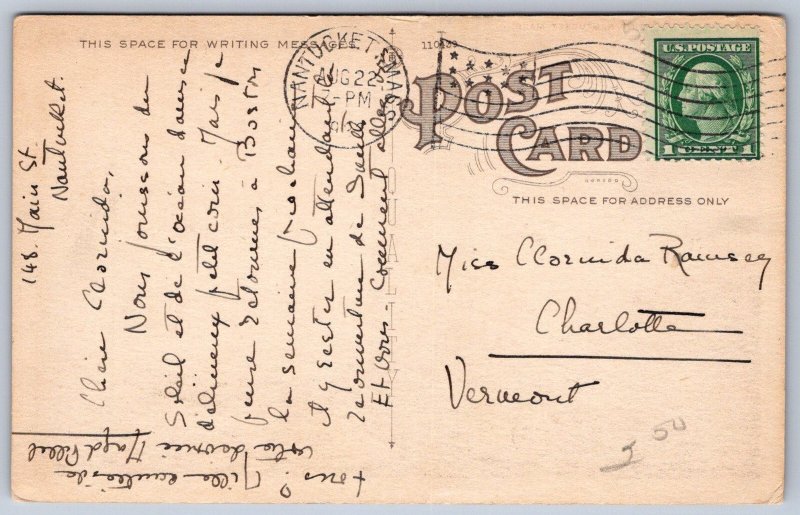 THIS SPACE FOR WRITING MESSAGES
110139
NANTUCKET MASS.
AUG 22
-PM
POST CARD
U.S. POSTAGE
1 CENT 1
THIS SPACE FOR ADDRESS ONLY
148. Main St.
Nantucket.
Chère Clorinda,
Nous jouissons du
Soleil et de l'océan dans ce
délicieux petit coin. Mais je
pense retourner à Boston
la semaine prochaine
et y rester en attendant la
réouverture de Smith
Et vous. Comment allez
vous?
Miss Clorinda Ramsey
Charlotte
Vermont
50